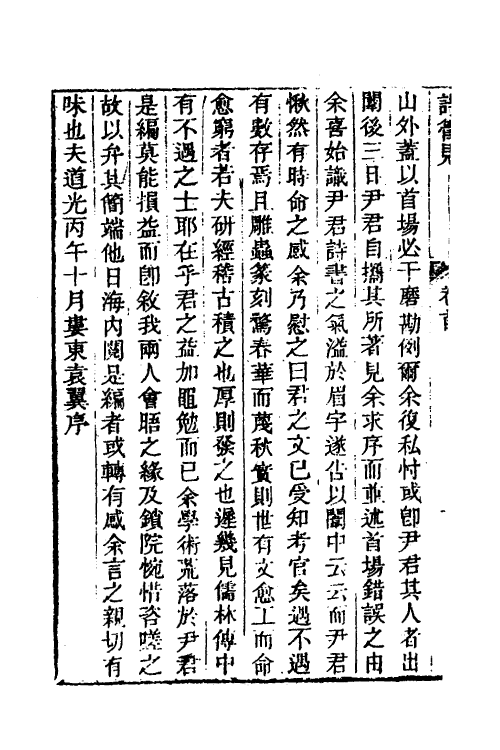 詩管見 卷首
山外蓋以首場必干磨勘例爾余復私忖或卽尹君其人者出
闈後三日尹君自攜其所著見余求序而並述首場錯誤之由
余喜始識尹君詩書之氣溢於眉宇遂告以闈中云云而尹君
愀然有時命之感余乃慰之曰君之文已受知考官矣遇不遇
有數存焉且雕蟲篆刻驚春華而蔑秋實則世有文愈工而命
愈窮者若夫研經稽古積之也厚則發之也遲幾見儒林傳中
有不遇之士耶在乎君之益加黽勉而已余學術荒落於尹君
是編莫能損益而卽敘我兩人會晤之緣及鎖院惋惜咨嗟之
故以弁其簡端他日海內閱是編者或轉有感余言之親切有
味也夫道光丙午十月婁東袁翼序